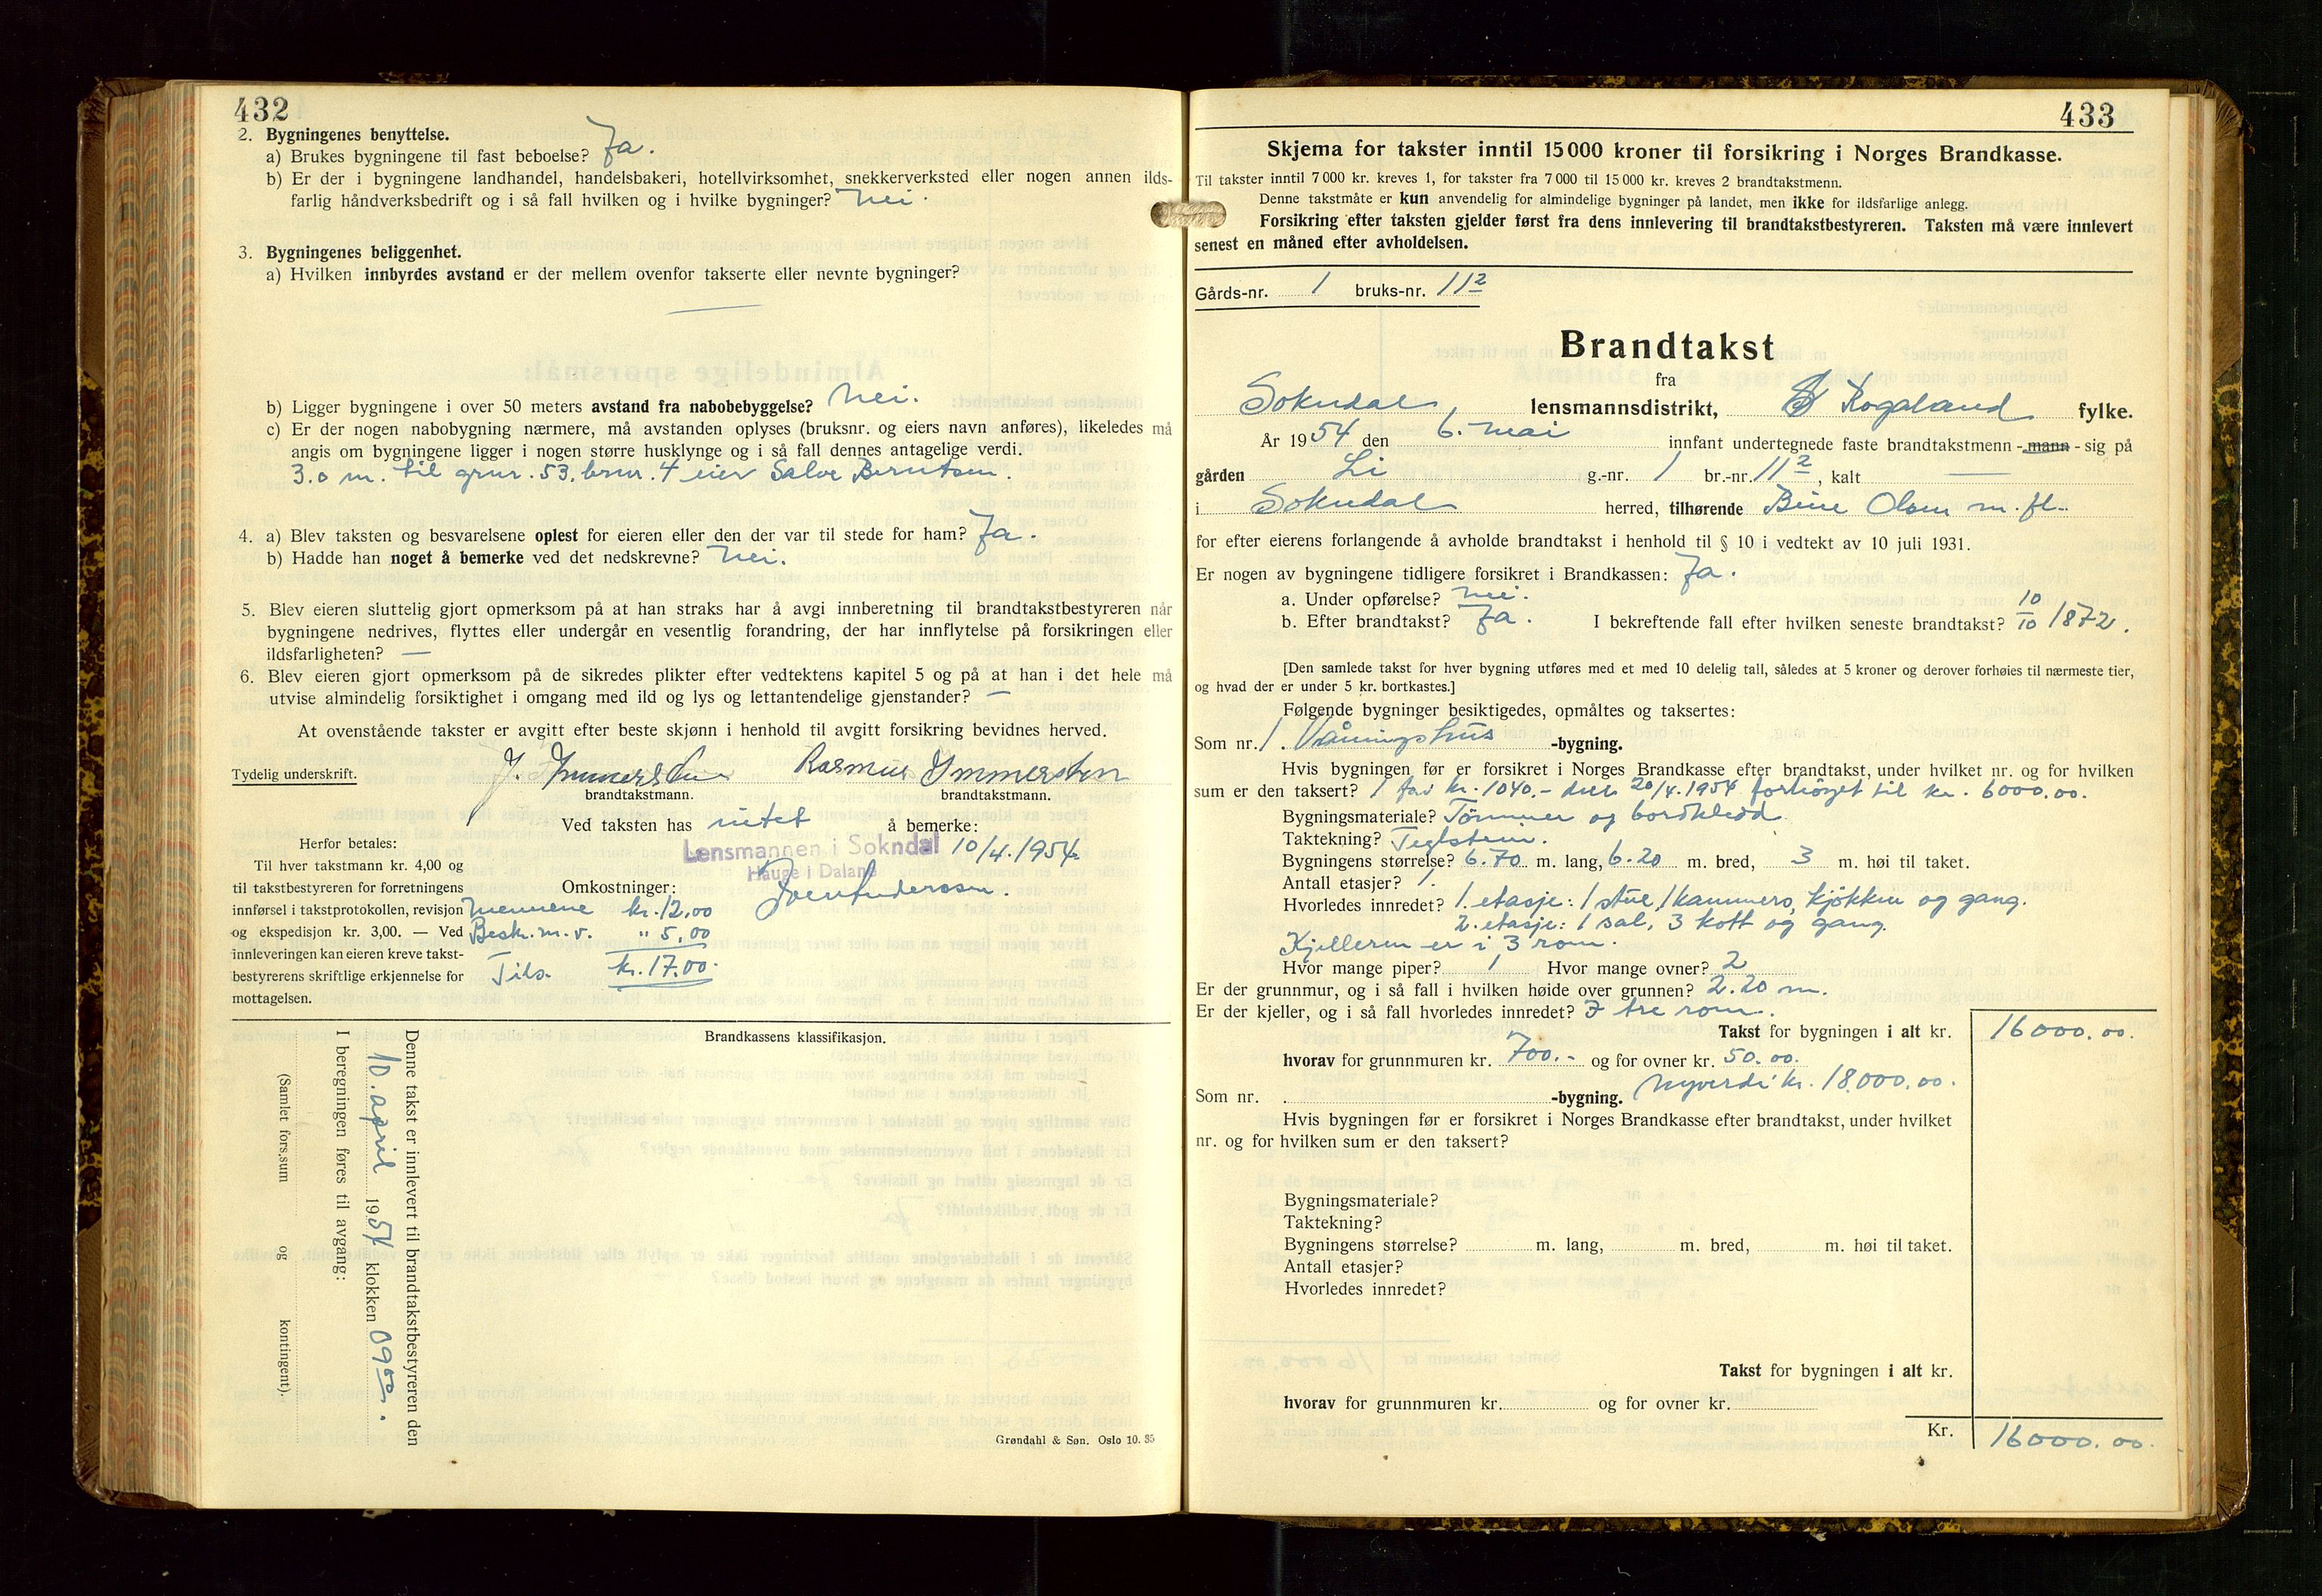 432
2. Bygningenes benyttelse.
a) Brukes bygningene til fast beboelse? Ja.
b) Er der i bygningene landhandel, handelsbakeri, hotellvirksomhet, snekkerverksted eller nogen annen ilds-
farlig håndverksbedrift og i så fall hvilken og i hvilke bygninger? Nei.
3. Bygningenes beliggenhet.
a) Hvilken innbyrdes avstand er der mellem ovenfor takserte eller nevnte bygninger?
—
b) Ligger bygningene i over 50 meters avstand fra nabobebyggelse? Nei.
c) Er der nogen nabobygning nærmere, må avstanden oplyses (bruksnr. og eiers navn anføres), likeledes må
angis om bygningene ligger i nogen større husklynge og i så fall dennes antagelige verdi.
3.0 m. til gnr. 53. bnr. 4 eier Salve Berntsen.
4. a) Blev taksten og besvarelsene oplest for eieren eller den der var til stede for ham? Ja.
b) Hadde han noget å bemerke ved det nedskrevne? Nei.
5. Blev eieren sluttelig gjort opmerksom på at han straks har å avgi innberetning til brandtakstbestyreren når
bygningene nedrives, flyttes eller undergår en vesentlig forandring, der har innflytelse på forsikringen eller
ildsfarligheten? —
6. Blev eieren gjort opmerksom på de sikredes plikter efter vedtektens kapitel 5 og på at han i det hele må
utvise almindelig forsiktighet i omgang med ild og lys og lettantendelige gjenstander? —
At ovenstående takster er avgitt efter beste skjønn i henhold til avgitt forsikring bevidnes herved.
Tydelig underskrift. J. Immerstein Rasmus Immerstein
brandtakstmann. brandtakstmann.
Ved taksten has intet å bemerke:
Lensmannen i Sokndal 10/4.1954.
Hauge i Dalane
Herfor betales:
Til hver takstmann kr. 4,00 og
til takstbestyreren for forretningens
innførsel i takstprotokollen, revisjon
og ekspedisjon kr. 3,00. — Ved
innleveringen kan eieren kreve takst-
bestyrerens skriftlige erkjennelse for
mottagelsen.
Omkostninger:
Mennene kr. 12,00
Besk. m. v. " 5,00
Tils. kr. 17.00.
Brandkassens klassifikasjon.
Denne takst er innlevert til brandtakstbestyreren den
10. april 1954 klokken 0900.
I beregningen føres til avgang:
(Samlet fors.sum og kontingent).
Grøndahl & Søn. Oslo 10. 35
433
Skjema for takster inntil 15000 kroner til forsikring i Norges Brandkasse.
Til takster inntil 7000 kr. kreves 1, for takster fra 7000 til 15000 kr. kreves 2 brandtakstmenn.
Denne takstmåte er kun anvendelig for almindelige bygninger på landet, men ikke for ildsfarlige anlegg.
Forsikring efter taksten gjelder først fra dens innlevering til brandtakstbestyreren. Taksten må være innlevert
senest en måned efter avholdelsen.
Gårds-nr. 1 bruks-nr. 11²
Brandtakst
fra
Sokndal, lensmannsdistrikt, Rogaland fylke.
År 1954 den 6. mai innfant undertegnede faste brandtakstmenn - mann - sig på
gården Li g.-nr. 1 br.-nr. 11², kalt —
i Sokndal herred, tilhørende Olsen m. fl.
for efter eierens forlangende å avholde brandtakst i henhold til § 10 i vedtekt av 10 juli 1931.
Er nogen av bygningene tidligere forsikret i Brandkassen: Ja.
a. Under opførelse? Nei.
b. Efter brandtakst? Ja. I bekreftende fall efter hvilken seneste brandtakst? 10/10 1872.
[Den samlede takst for hver bygning utføres med et med 10 delelig tall, således at 5 kroner og derover forhøies til nærmeste tier,
og hvad der er under 5 kr. bortkastes.]
Følgende bygninger besiktigedes, opmåltes og taksertes:
Som nr. 1. Våningshus -bygning.
Hvis bygningen før er forsikret i Norges Brandkasse efter brandtakst, under hvilket nr. og for hvilken
sum er den taksert? 1 for kr. 1040.- den 20/4.1954 forhöyet til kr. 6000.00.
Bygningsmateriale? Tömmer og bordkledd
Taktekning? Teglstein.
Bygningens størrelse? 6.70 m. lang, 6.20 m. bred, 3 m. høi til taket.
Antall etasjer? 1.
Hvorledes innredet? 1. etasje: 1 stue, 1 kammers, kjökken og gang.
2. etasje: 1 sal, 3 kott og gang.
Kjelleren er i 3 rom.
Hvor mange piper? 1 Hvor mange ovner? 2
Er der grunnmur, og i så fall i hvilken høide over grunnen? 2.20 m.
Er der kjeller, og i så fall hvorledes innredet? I tre rom.
Takst for bygningen i alt kr. 16000.00.
hvorav for grunnmuren kr. 700.- og for ovner kr. 50.00.
Nyverdi kr. 18.000.00.
Som nr. . -bygning.
Hvis bygningen før er forsikret i Norges Brandkasse efter brandtakst, under hvilket
nr. og for hvilken sum er den taksert?
Bygningsmateriale?
Taktekning?
Bygningens størrelse? m. lang, m. bred, m. høi til taket.
Antall etasjer?
Hvorledes innredet?
Takst for bygningen i alt kr.
hvorav for grunnmuren kr. og for ovner kr.
Kr. 16000.00.